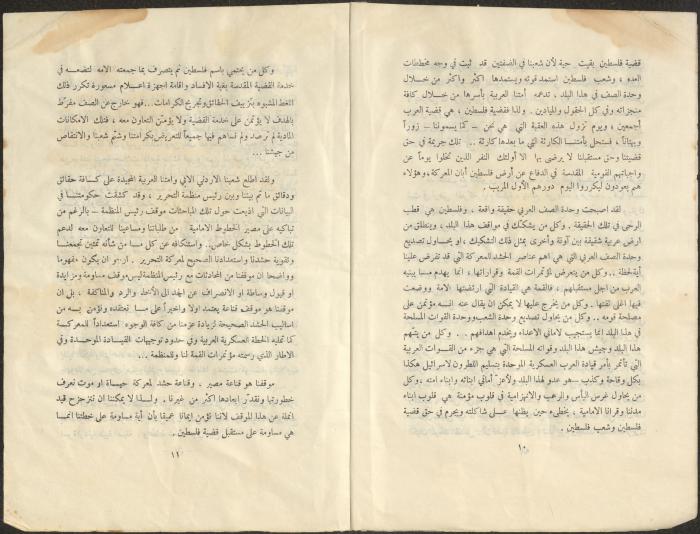 قضية فلسطين بقيت حية لأن شعبنا في الضفتين قد ثبت في وجه مخططات
العدو ، وشعب فلسطين استمد قوته ويستمدها اكثر واكثر من خلال
وحدة الصف في هذا البلد ، تدعمه أمتنا العربية بأسرها من خلال كافة
منجزاته وفي كل الحقول والميادين . ولذا فقضية فلسطين ، هي قضية العرب
أجمعين ، ويوم تزول هذه العقبة التي هي نحن – كما يسموننا – زوراً
وبهتاناً ، فستحل بأمتنا الكارثة التي ما بعدها كارثة .. تلك جريمة في حق
قضيتنا وحق مستقبلنا لا يرضى بها الا أولئك النفر الذين تخلوا يوماً عن
واجباتهم القومية المقدسة في الدفاع عن أرض فلسطين أبان المعركة ، وهؤلاء
هم يعودون ليكرروا اليوم دورهم الأول المريب .
لقد اصبحت وحدة الصف العربي حقيقة واقعة ، وفلسطين هي قطب
الرحى في تلك الحقيقة . وكل من يشكك في مواقف هذا البلد ، وينطلق من
ارض عربية شقيقة بين آونة وأخرى بمثل ذلك التشكيك ، او يحاول تصديع
وحدة الصف العربي التي هي اهم عناصر الحشد للمعركة التي قد تفرض علينا
أية لحظة .. وكل من يتعرض لمؤتمرات القمة وقراراتها ، انما يهدم مسا يبنيه
العرب من اجل مستقبلهم ، فالقمة هي القيادة التي ارتضتها الامة ووضعت
فيها اغلى ثقتها . وكل من يخرج عليها لا يمكن ان يقال عنه انسه مؤتمن على
مصلحة قومه .. وكل من يحاول تصديع وحدة الشعب ووحدة القوات المسلحة
في هذا البلد انما يستجيب لأماني الاعداء ويخدم اهدافهم .. وكل من يتهم
هذا البلد وجيش هذا البلد وقواته المسلحة التي هي جزء من القوات العربية
التي تأتمر بأمر قيادة العرب العسكرية الموحدة بتسليم اللطرون لاسرائيل هكذا
بكل وقاحة وكذب – هو عدو لهذا البلد ولأعز أماني ابنائه وابناء امته ، وكل
من يحاول غرس اليأس والرعب والانهزامية في قلوب مؤمنة هي قلوب ابناء
مدننا وقرانا الامامية ، يخطىء حين يظنها على شاكلته ويجرم في حق قضية
فلسطين وشعب فلسطين .
١٠
وكل من يحتمي باسم فلسطين ثم يتصرف بما جمعته الامة لتضعه في
خدمة القضية المقدسة بغية الافساد واقامة اجهزة اعلام مسعورة تكرر ذلك
النمط المشبوه بتزييف الحقائق وتجريح الكرامات ... فهو خارج عن الصف مفرّط
بالهدف لا يؤتمن على خدمة القضية ولا يؤمن التعاون معه ، فتلك الامكانات
المادية لم ترصد ولم نساهم فيها جميعاً للتعريض بكرامتنا وشتم شعبنا والانتقاص
من جيشنا ...
ولقد اطلع شعبنا الاردني الابي وامتنا العربية المجيدة على كافة حقائق
ودقائق ما تم بيننا وبين رئيس منظمة التحرير ، وقد كشفت حكومتنا في
البيانات التي اذيعت حول تلك المباحثات موقف رئيس المنظمة – بالرغم من
تباكيه على مصير الخطوط الامامية – من طلباتنا ومساعينا للتعاون معه لدعم
تلك الخطوط بشكل خاص .. واستنكافه عن كل مسا من شأنه تمتين تجمعنا
وتقوية حشدنا واستعدادنا الصحيح لمعركة التحرير . ارجو ان يكون مفهوما
وواضحا ان موقفنا من المحادثات مع رئيس المنظمة ليس موقف مساومة ومزايدة
او قبول وساطة او الانصراف عن الجد الى الأخذ والرد والمناكفة ، بل ان
موقفنا هو موقف قناعة يعتمد اولا واخيراً على مسا نعتقده ونؤمن بسه من
اساليب الحشد الصحيحة لزيادة عزمنا من كافة الوجوه استعداداً للمعركة
كما تمليه الخطة العسكرية العربية وفي حدود توجيهات القيسادة الموحدة وفي
الاطار الذي رسمته مؤتمرات القمة لنا وللمنظمة ...
موقفنا هو قناعة مصير . وقناعة حشد لمعركة حيساة او موت نعرف
خطورتها ونقدّر ابعادها اكثر من غيرنا . ولسذا لا يمكننا ان نتزحزح قيد
انملة عن هذا الموقف لاننا نؤمن ايمانا عميقا بأن أية مساومة على خطتنا انما
هي مساومة على مستقبل قضية فلسطين .
١١